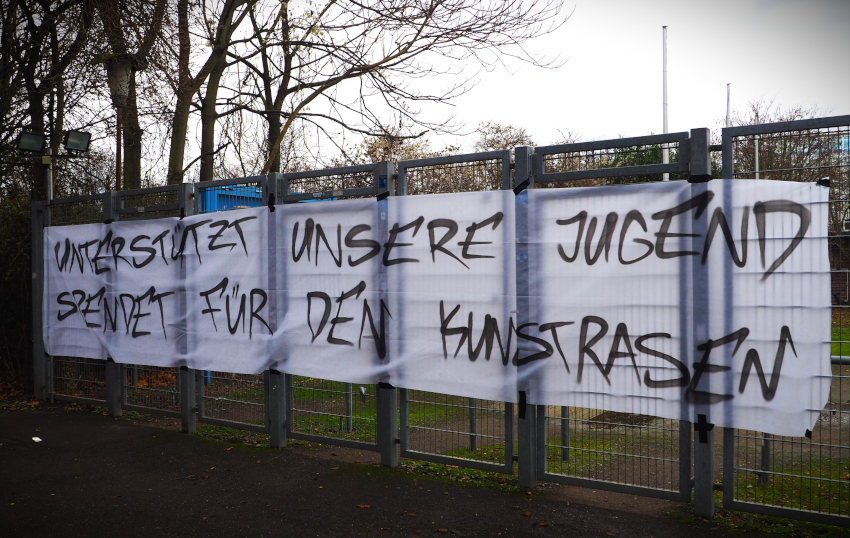 UNTERSTÜTZT UNSERE JUGEND
SPENDET FÜR DEN KUNSTRASEN